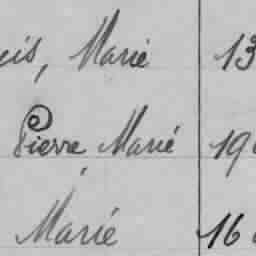 Marie 13
Pierre Marié 19
Marié 16